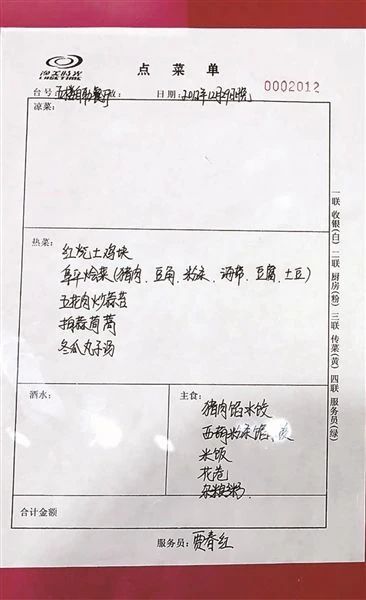 点菜单
0002012
台号: 五楼自助餐厅 日期: 2012年12月29日晚
凉菜:
热菜:
红烧土鸡块
阜平烩菜(猪肉、豆角、粉条、海带、豆腐、土豆)
五花肉炒蒜苔
拍蒜茼蒿
冬瓜丸子汤
酒水:
主食:
猪肉馅水饺
西葫粉条馅
米饭
花卷
杂粮粥
合计金额
服务员: 贾春红
一联 收银(白) 二联 厨房(粉) 三联 传菜(黄) 四联 服务员(绿)